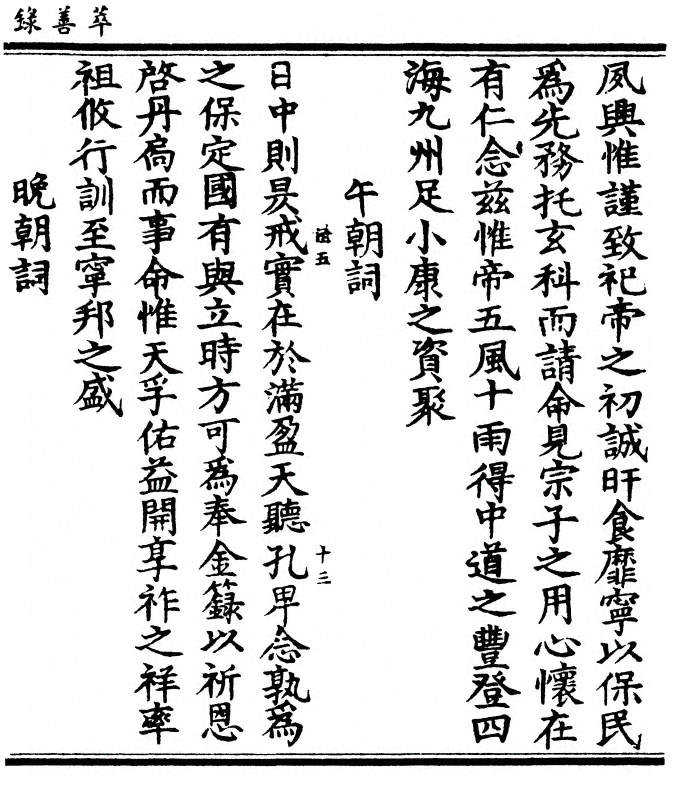 萃善錄
夙興惟謹致祀帝之初誠旰食靡寧以保民
爲先務托玄科而請命見宗子之用心懷在
有仁念茲惟帝五風十雨得中道之豐登四
海九州足小康之資聚
午朝詞
日中則昃戒實在於滿盈天聽孔卑念孰爲
之保定國有與立時方可爲奉金籙以祈恩
啓丹扄而事命惟天孚佑益開享祚之祥率
祖攸行訓至寧邦之盛
晚朝詞
五
十三